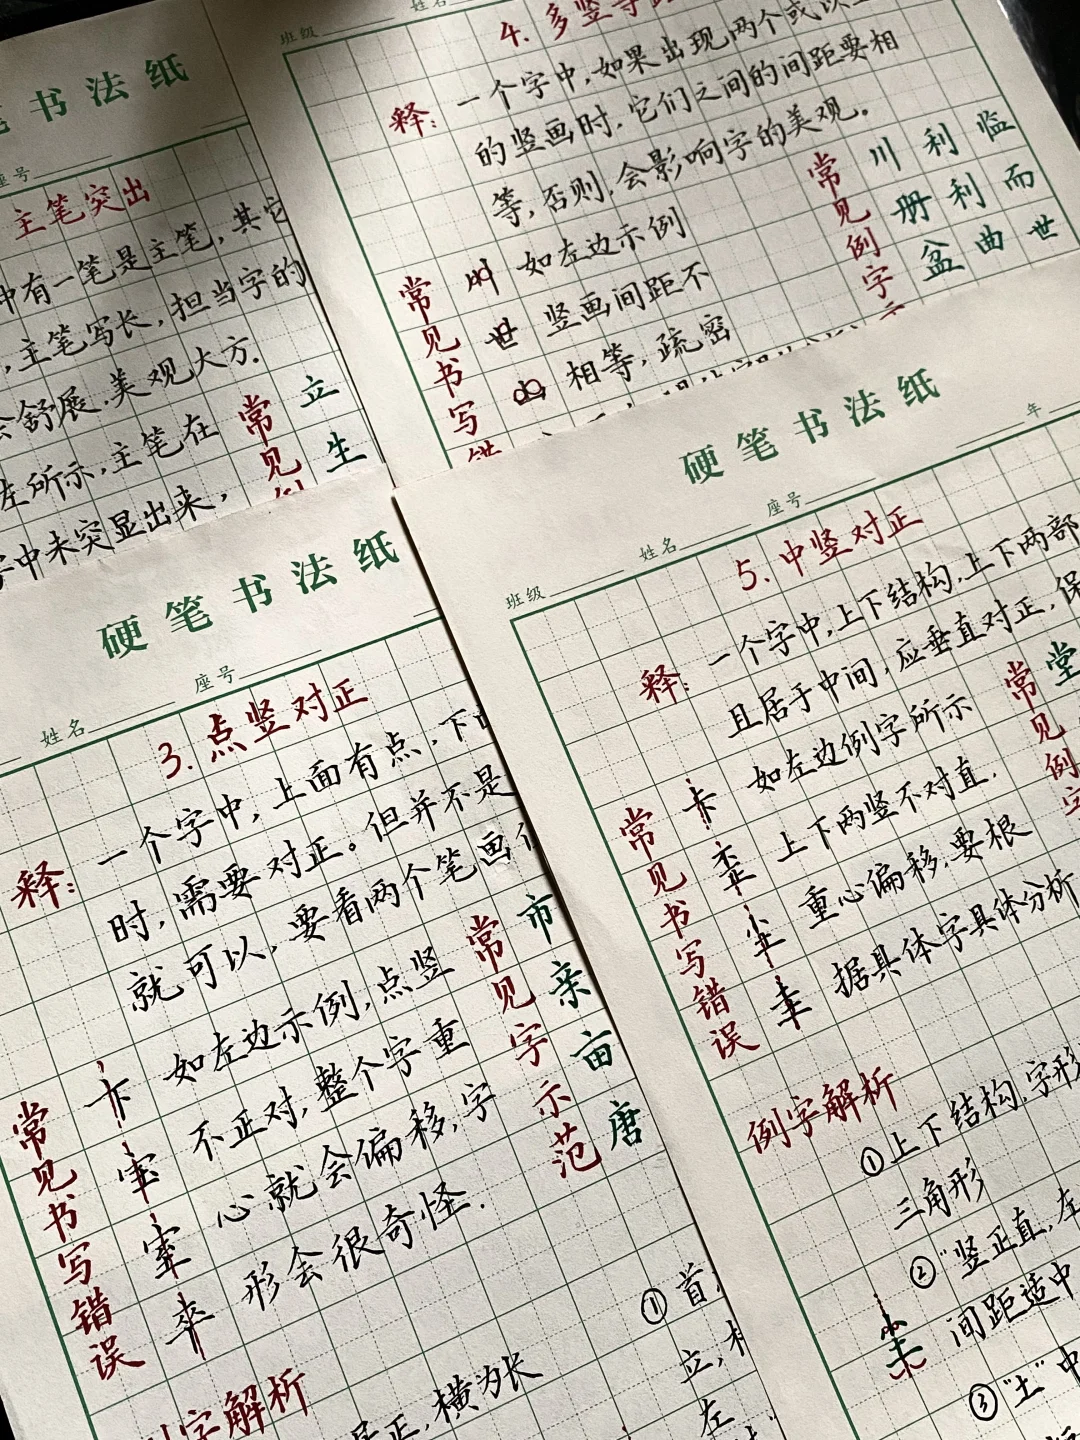 书法纸
座号
主笔突出
中有一笔是主笔,其它
,主笔写长,担当字的
会舒展,美观大方.
左所示,主笔在
字中未突显出来,
常见例
立
生
班级 姓名
4.多竖等距
释: 一个字中,如果出现两个或以上
的竖画时,它们之间的间距要相
等,否则,会影响字的美观。
常见书写错
世 如左边示例
竖画间距不
相等,疏密
常见例字示
川利临
册利而
盆曲世
硬笔书法纸
姓名 座号
3.点竖对正
释: 一个字中,上面有点,下
时,需要对正。但并不是
就可以,要看两个笔画
如左边示例,点竖
不正对,整个字重
心就会偏移,字
形会很奇怪.
常见书写错误
卞
室
率
常见字示范
市
亲
亩
唐
字解析
居正,横为长
①首
立,
左
硬笔书法纸
班级 姓名 座号 年
5.中竖对正
释: 一个字中,上下结构,上下两部
且居于中间,应垂直对正,保
如左边例字所示
上下两竖不对直.
重心偏移,要根
据具体字具体分析
常见书写错误
卡
歪
尘
圭
常见例字
堂
例字解析
①上下结构,字形
三角形
②"竖正直,左
间距适中
③"土"中